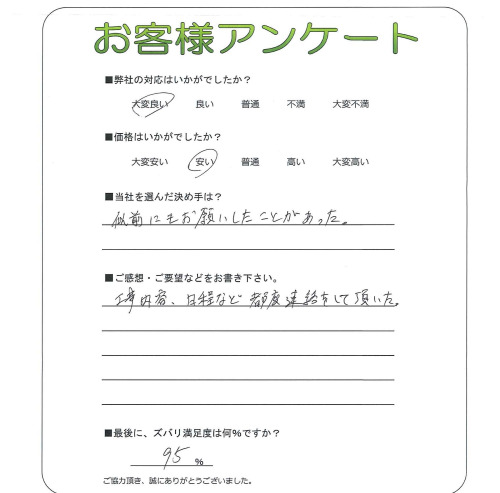 お客様アンケート
■弊社の対応はいかがでしたか？
大変良い 良い 普通 不満 大変不満
■価格はいかがでしたか？
大変安い 安い 普通 高い 大変高い
■当社を選んだ決め手は？
以前にもお願いしたことがあった。
■ご感想・ご要望などをお書き下さい。
工事内容、日程など都度連絡をして頂いた。
■最後に、ズバリ満足度は何%ですか？
95 %
ご協力頂き、誠にありがとうございました。